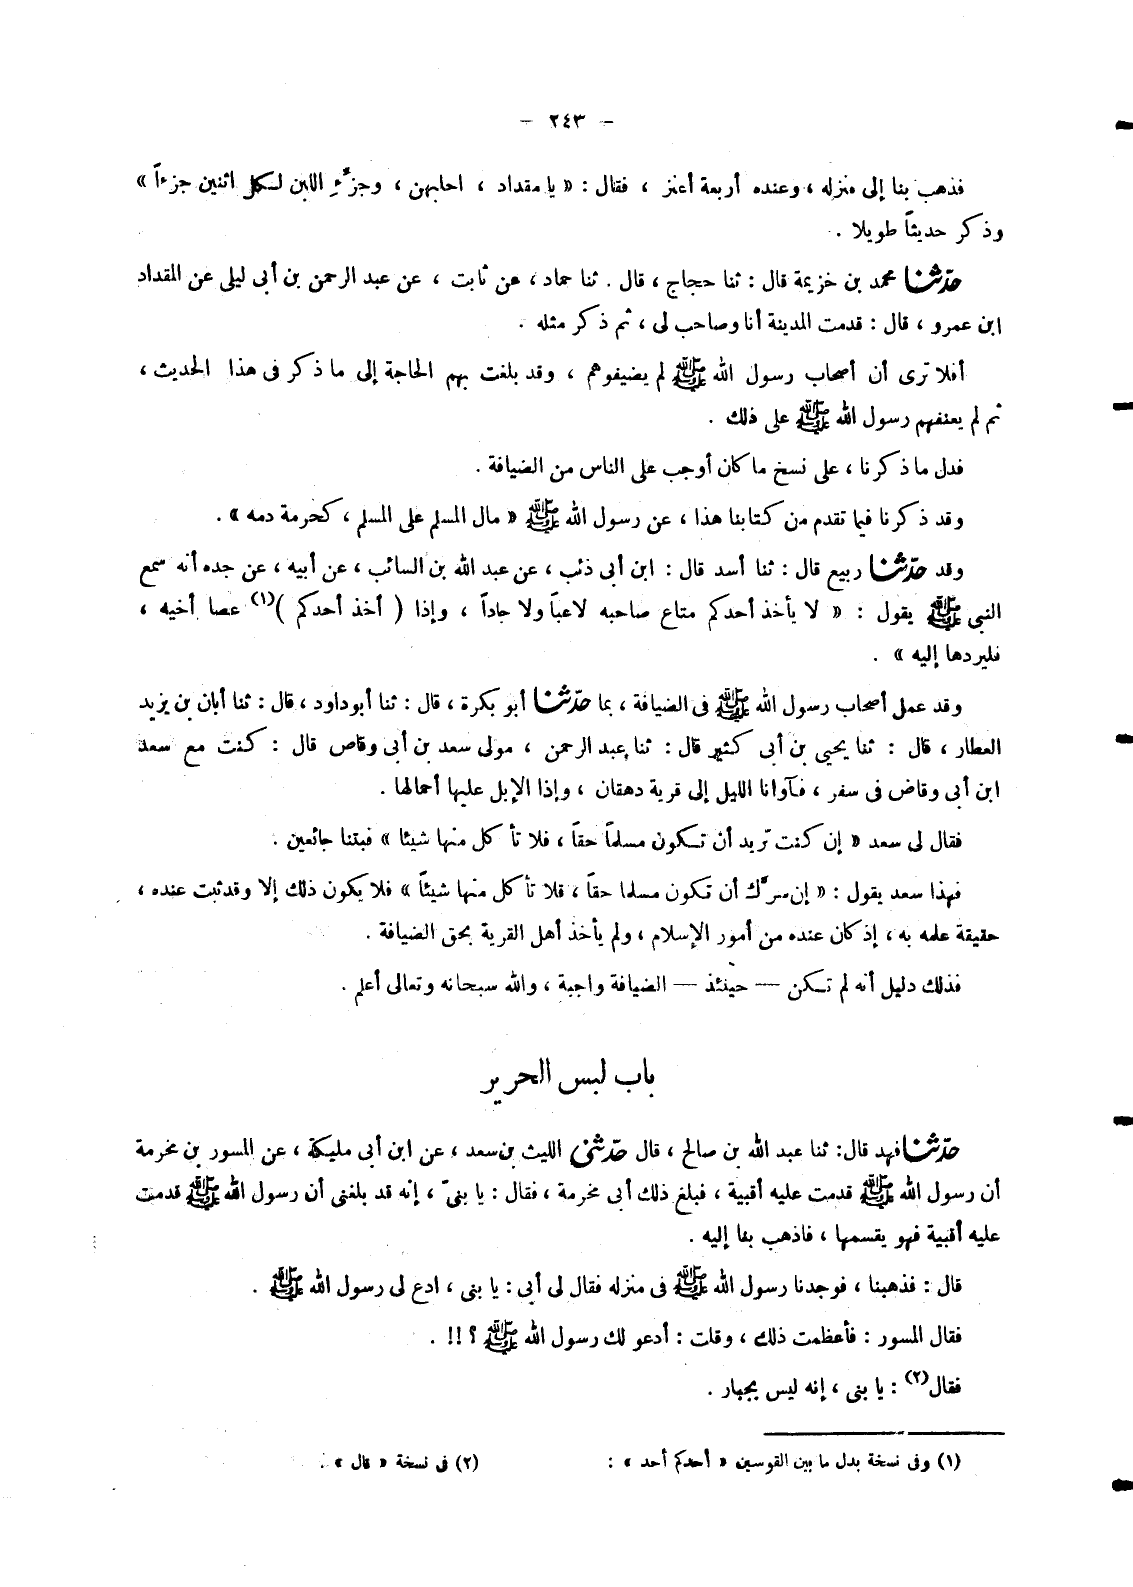 - ٢٤٣ -
فذهب بنا إلى منزله ، وعنده أربعة أعنز ، فقال : « يا مقداد ، احلبهن ، وجزِّءِ اللبن لكل اثنين جزءاً »
وذكر حديثاً طويلا .
حدّثنا محمد بن خزيمة قال : ثنا حجاج ، قال . ثنا حماد ، عن ثابت ، عن عبد الرحمن بن أبى ليلى عن المقداد
ابن عمرو ، قال : قدمت المدينة أنا وصاحب لى ، ثم ذكر مثله .
أفلا ترى أن أصحاب رسول الله ﷺ لم يضيفوهم ، وقد بلغت بهم الحاجة إلى ما ذكر فى هذا الحديث ،
ثم لم يعنفهم رسول الله ﷺ على ذلك .
فدل ما ذكرنا ، على نسخ ما كان أوجب على الناس من الضيافة .
وقد ذكرنا فيما تقدم من كتابنا هذا ، عن رسول الله ﷺ « مال المسلم على المسلم ، كحرمة دمه » .
وقد حدّثنا ربيع قال : ثنا أسد قال : ابن أبى ذئب ، عن عبد الله بن السائب ، عن أبيه ، عن جده أنه سمع
النبي ﷺ يقول : « لا يأخذ أحدكم متاع صاحبه لاعباً ولا جاداً ، وإذا ( أخذ أحدكم )(١) عصا أخيه ،
فليردها إليه » .
وقد عمل أصحاب رسول الله ﷺ فى الضيافة ، بما حدّثنا أبو بكرة ، قال : ثنا أبو داود ، قال : ثنا أبان بن يزيد
العطار ، قال : ثنا يحيى بن أبى كثير قال : ثنا عبد الرحمن ، مولى سعد بن أبى وقاص قال : كنت مع سعد
ابن أبى وقاص فى سفر ، فآوانا الليل إلى قرية دهقان ، وإذا الإبل عليها أحمالها .
فقال لى سعد « إن كنت تريد أن تكون مسلماً حقاً ، فلا تأكل منها شيئا » فبتنا جائعين .
فهذا سعد يقول : « إن سرّك أن تكون مسلما حقاً ، فلا تأكل منها شيئاً » فلا يكون ذلك إلا وقد ثبت عنده ،
حقيقة علمه به ، إذ كان عنده من أمور الإسلام ، ولم يأخذ أهل القرية بحق الضيافة .
فذلك دليل أنه لم تكن — حينئذ — الضيافة واجبة ، والله سبحانه وتعالى أعلم .
باب لبس الحرير
حدّثنا فهد قال : ثنا عبد الله بن صالح ، قال حدّثنى الليث بن سعد ، عن ابن أبى مليكة ، عن المسور بن مخرمة
أن رسول الله ﷺ قدمت عليه أقبية ، فبلغ ذلك أبى مخرمة ، فقال : يا بنىّ ، إنه قد بلغنى أن رسول الله ﷺ قدمت
عليه أقبية فهو يقسمها ، فاذهب بنا إليه .
قال : فذهبنا ، فوجدنا رسول الله ﷺ فى منزله فقال لى أبى : يا بنى ، ادع لى رسول الله ﷺ .
فقال المسور : فأعظمت ذلك ، وقلت : أدعو لك رسول الله ﷺ ؟ !! .
فقال(٢) : يا بنى ، إنه ليس بجبار .
(١) وفى نسخة بدل ما بين القوسين « أحدكم أحد » : (٢) فى نسخة « قال » .